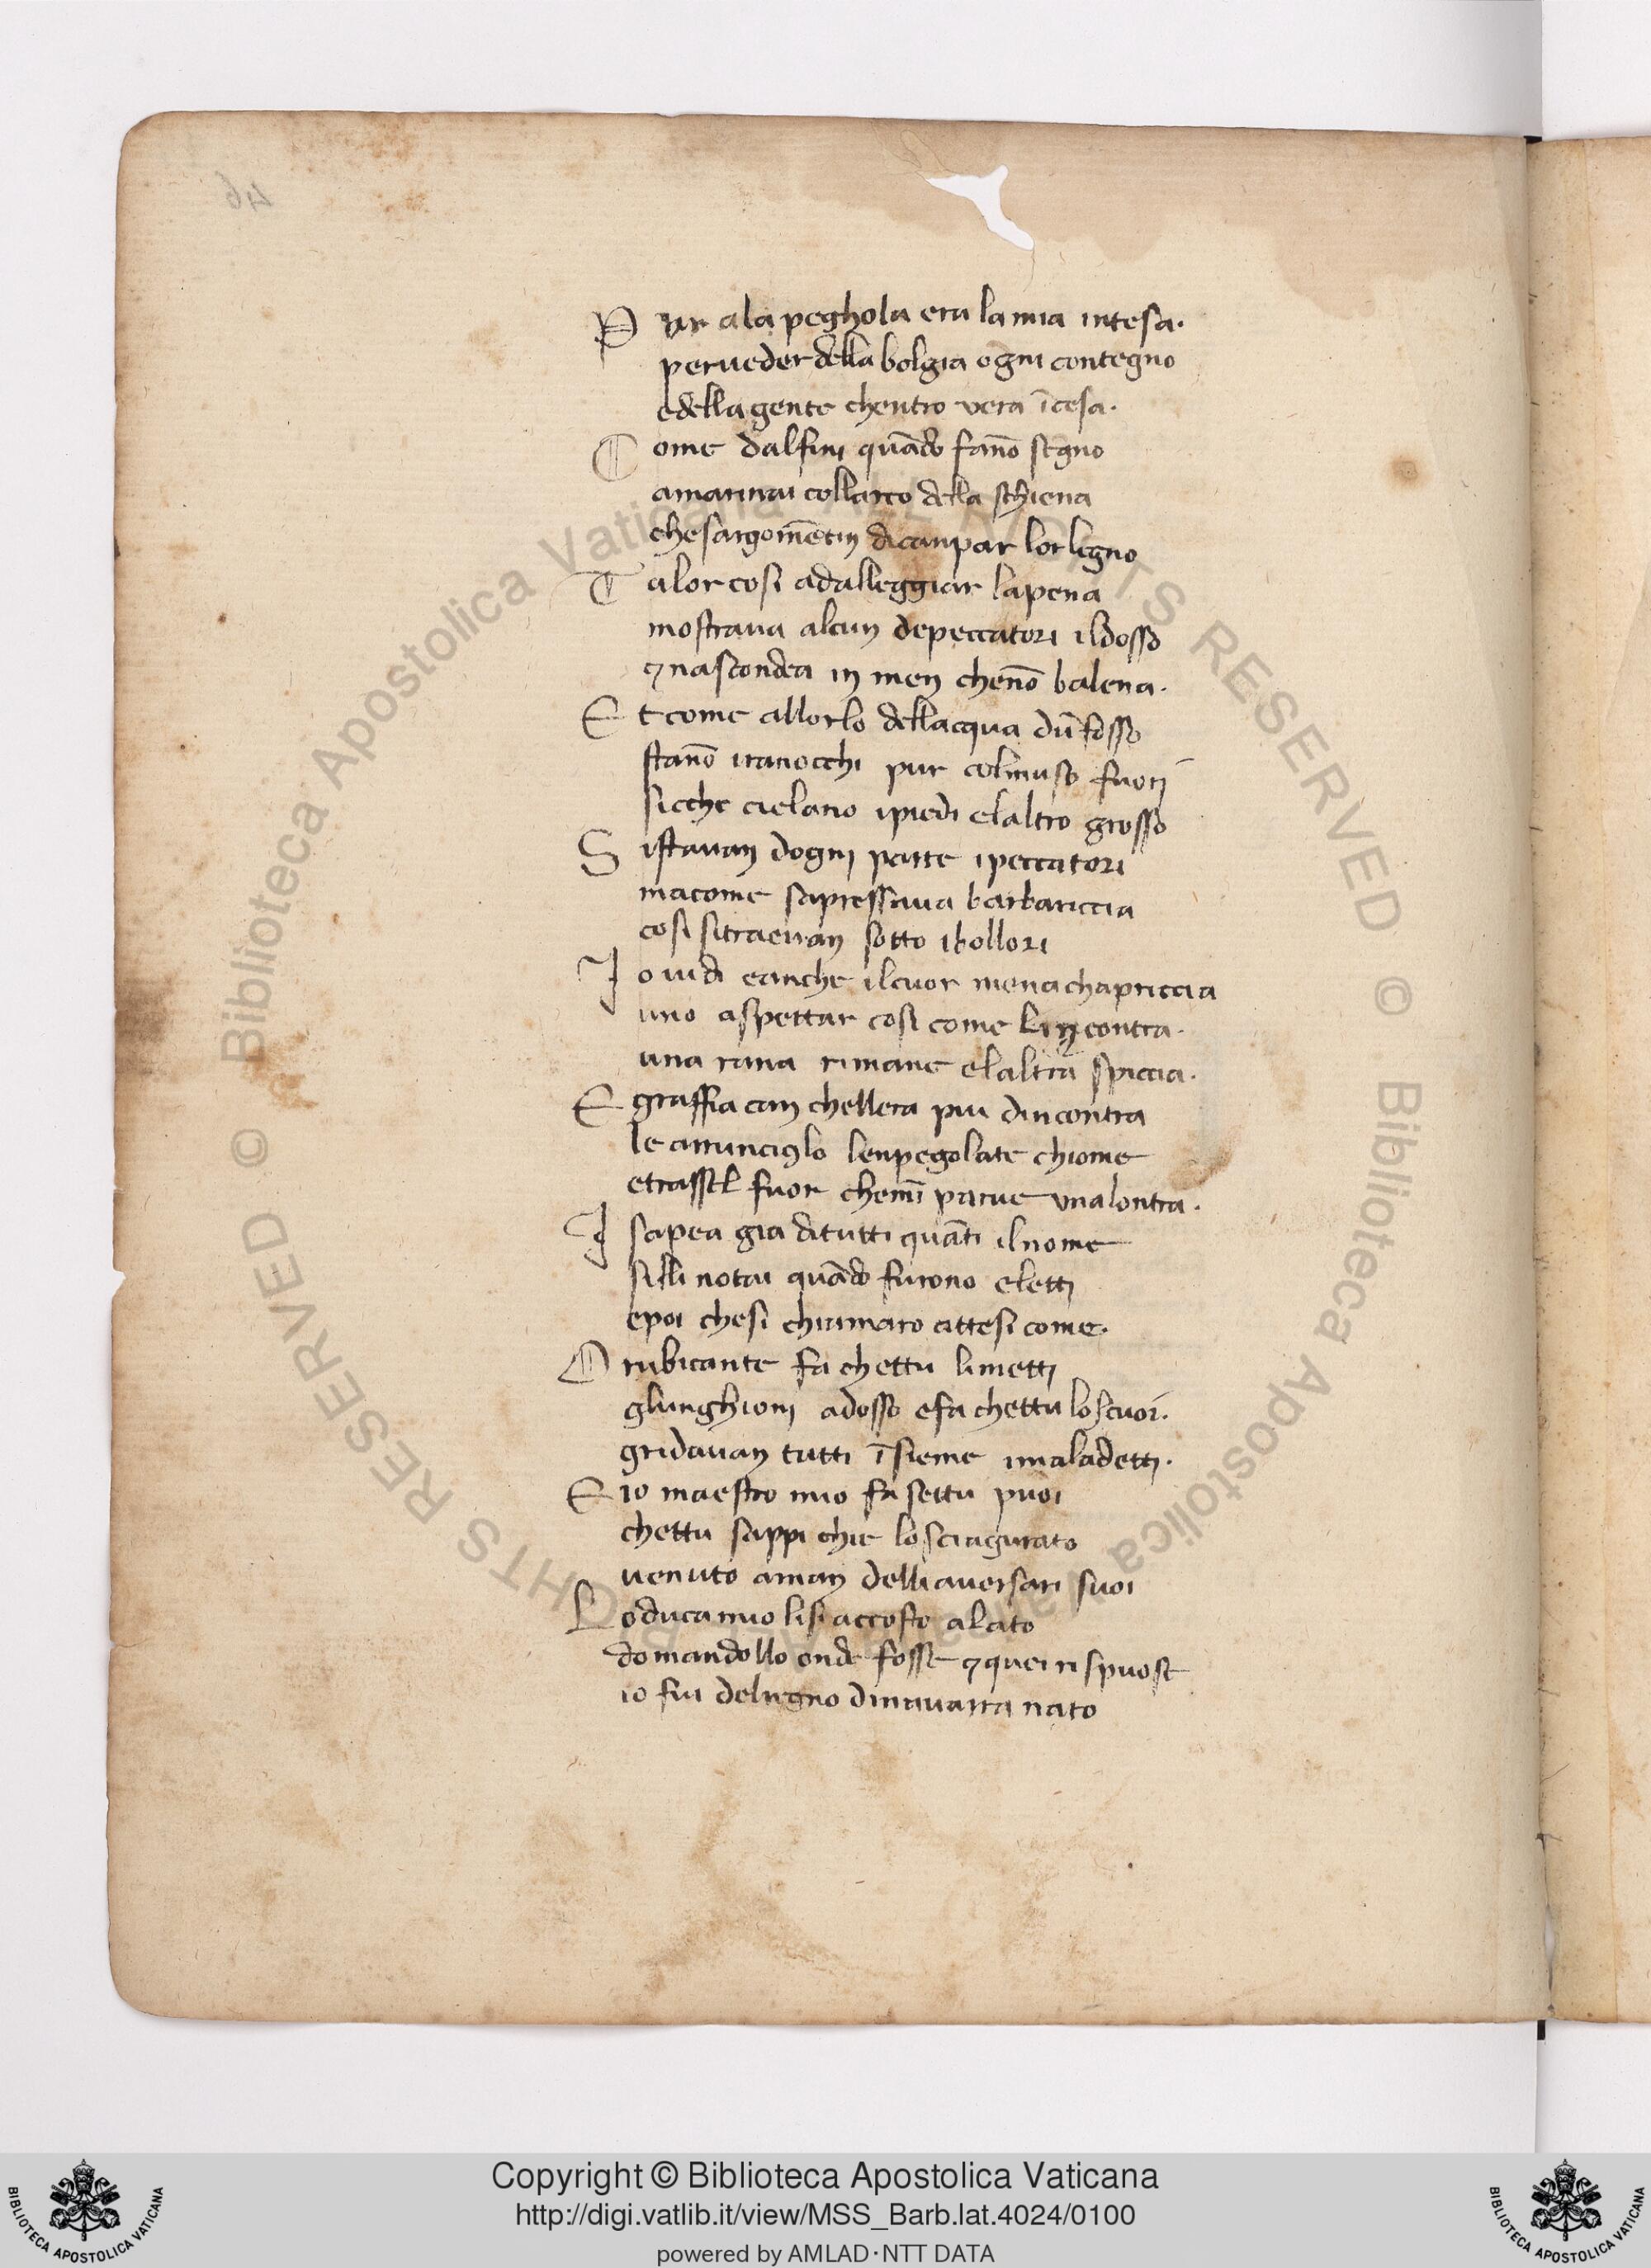 46
P ur ala peghola era lamia intesa.
perueder della bolgia ogni contegno
edella gente chentro vera īcesa.
C ome dalfini quādo fāno segno
amarinai collarco della schiena
chesargomētin dicanpar lor legno
T alor cosi adalleggiar lapena
mostraua alcun depeccatori ildosso
⁊ nascondea in men chenō balena.
E t come allorlo dellacqua dūfosso
stanō iranocchi pur colmuso fuori
sicche cielano ipiedi elaltro grosso
S istauan dogni parte ipeccatori
macome sapressaua barbariccia
cosi sitraeuan sotto ibollori
I o uidi eanche ilcuor menachapriccia
uno aspettar cosi come contra.
una rana rimane elaltra spiccia.
E graffia can chellera piu dincontra
le arrunciglo lenpegolate chiome
etrassel fuor chemī parue vnalontra.
I sapea gia ditutti quāti ilnome
silli notai quādo furono eletti
epoi chesi chiamaro attesi come.
O rubicante fa chettu limetti
glunghioni adosso efa chettu loscuoi.
gridauan tutti īsieme imaladetti.
E io maestro mio fa settu puoi
chettu sappi chie losciagurato
uenuto aman delliauersari suoi
L oduca mio lisi accosto alato
domandollo onde fosse ⁊ quei rispuose
io fui delregno dinauarra nato
Copyright © Biblioteca Apostolica Vaticana
http://digi.vatlib.it/view/MSS_Barb.lat.4024/0100
powered by AMLAD·NTT DATA
BIBLIOTECA APOSTOLICA VATICANA
BIBLIOTECA APOSTOLICA VATICANA
© Biblioteca Apostolica Vaticana RIGHTS RESERVED © Biblioteca Apostolica Vaticana RIGHTS RESERVED